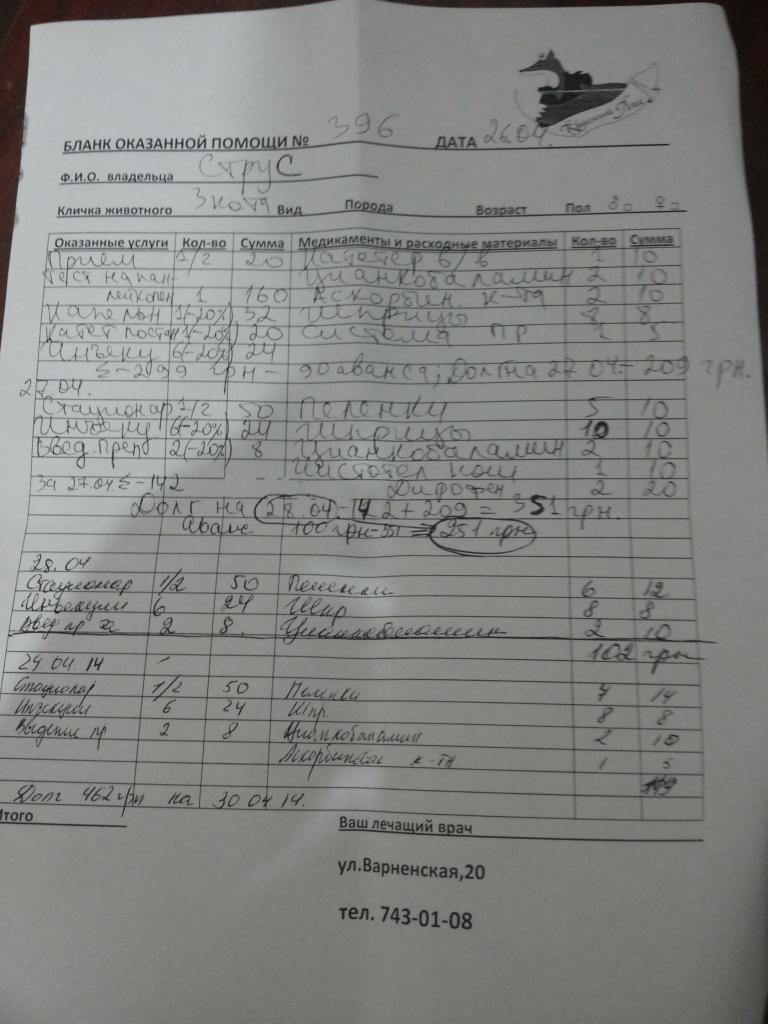 БЛАНК ОКАЗАННОЙ ПОМОЩИ № 396 ДАТА 26.04.
Ф.И.О. владельца Струс
Кличка животного 3 котя Вид Порода Возраст Пол ♂ ♀
Оказанные услуги Кол-во Сумма Медикаменты и расходные материалы Кол-во Сумма
Приём 1/2 20 Катетер в/в 1 10
Тест на пан- Цианкобаламин 2 10
лейкопен 1 160 Аскорбин. к-та 2 10
Капельн 1(-20%) 32 Шприцы 8 8
Катет постан 1(-20%) 20 Система ПР 1 5
Инъекц 6(-20%) 24
Σ-299 грн - 90 аванса; Долг на 27.04 - 209 грн.
27.04.
Стационар 1/2 50 Пеленки 5 10
Инъекц 6(-20%) 24 Шприцы 10 10
Введ. преп 2(-20%) 8 Цианкобаламин 2 10
Чистотел 1 10
За 27.04. Σ-142 2 20
Долг на 28.04.-142+209 = 351 грн.
Аванс 100 грн-351 = 251 грн
28.04
Стационар 1/2 50 Пеленки 6 12
Инъекции 6 24 Шпр 8 8
Введ пр 2 8. Цианкобаламин 2 10
102 грн
29.04.14
Стационар 1/2 50 Пеленки 7 14
Инъекции 6 24 Шпр. 8 8
Введение пр 2 8 Цианкобаламин 2 10
Аскорбиновая к-та 1 5
119
Долг 462 грн на 30 04 14.
Итого Ваш лечащий врач
ул.Варненская,20
тел. 743-01-08